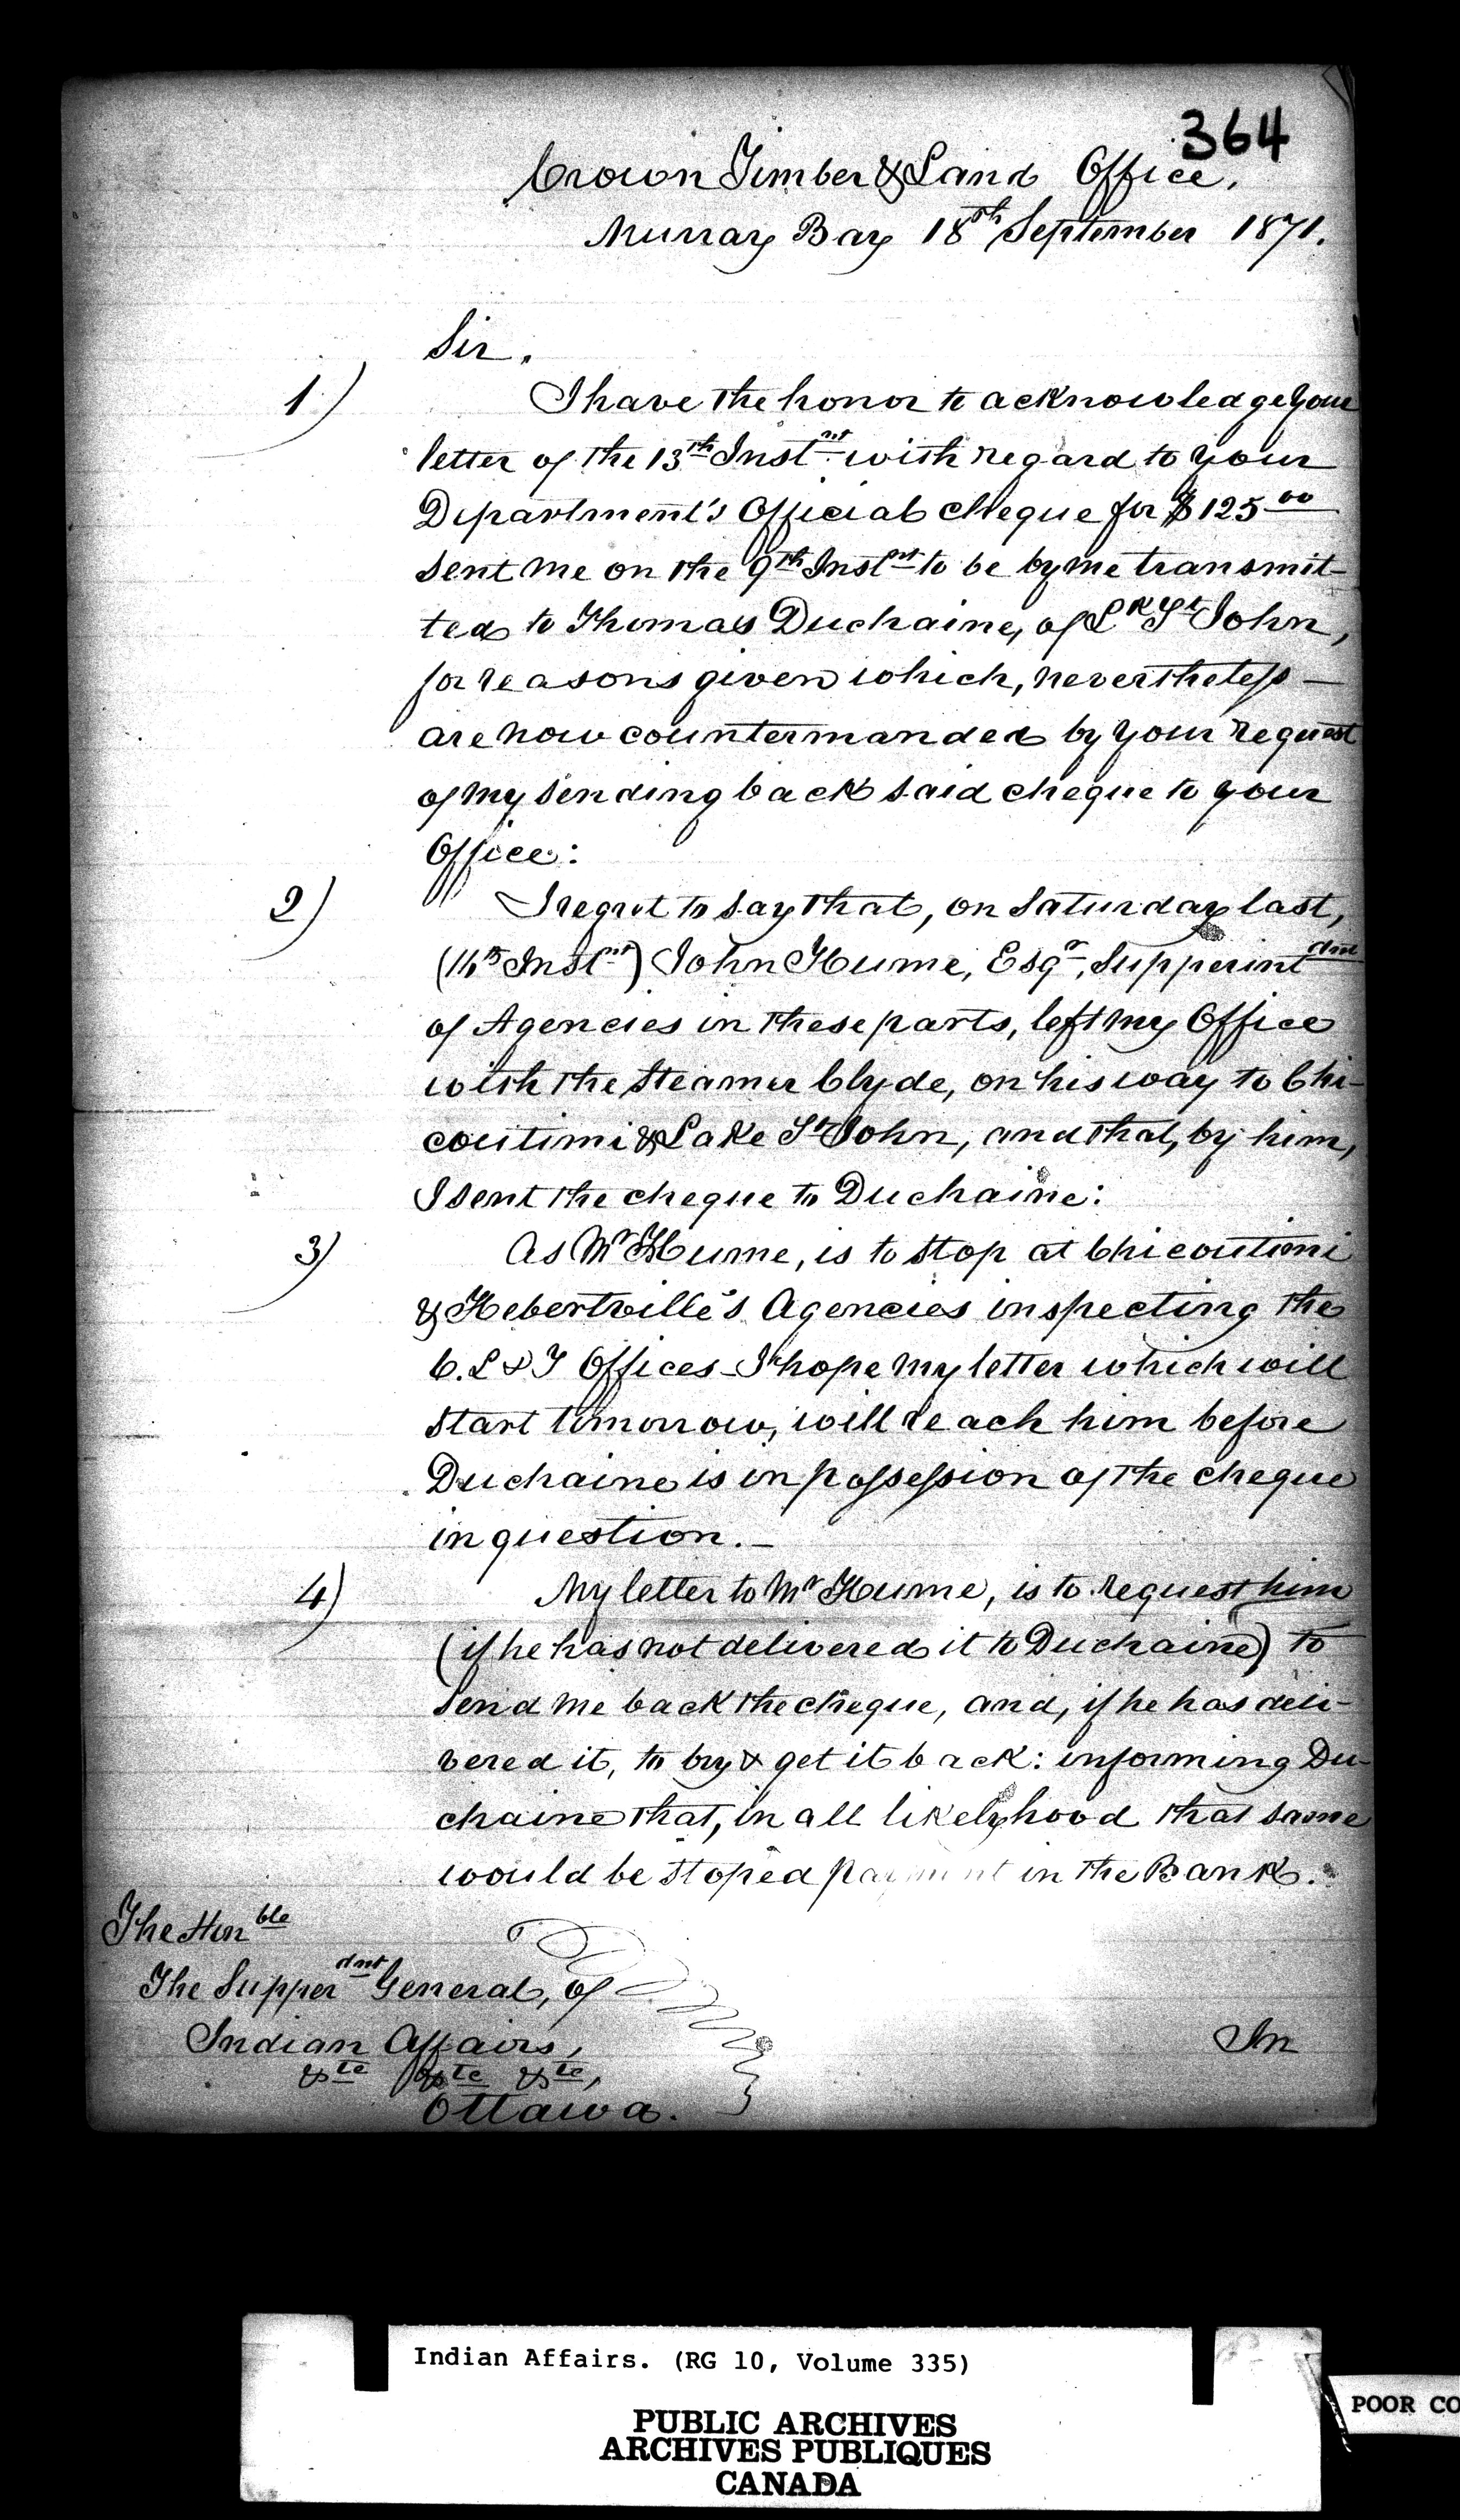 364
Crown Timber & Land Office,
Murray Bay 18th September 1871.
Sir,
1) I have the honor to acknowledge your
letter of the 13th Instnt with regard to your
Department's Official cheque for $125 00
sent me on the 9th Instnt to be by me transmit-
ted to Thomas Duchaine, of Lk St John,
for reasons given which, nevertheless —
are now countermanded by your request
of my sending back said cheque to your
Office:
2) I regret to say that, on Saturday last,
(16th Instnt) John Hume, Esqr, Supperintdnt
of Agencies in these parts, left my Office
with the steamer Clyde, on his way to Chi-
coutimi & Lake St John, and that, by him,
I sent the cheque to Duchaine:
3) As Mr Hume, is to stop at Chicoutimi
& Hebertville's Agencies inspecting the
C. L & T Offices - I hope my letter which will
start tomorrow, will reach him before
Duchaine is in possession of the cheque
in question. —
4) My letter to Mr Hume, is to request him
(if he has not delivered it to Duchaine) to
send me back the cheque, and, if he has deli-
vered it, to try & get it back: informing Du-
chaine that, in all likelyhood that same
would be stoped payment in the Bank.
The Honble
The Supperdnt General, of
Indian Affairs,
&te &te &te,
Ottawa.
In
Indian Affairs. (RG 10, Volume 335)
PUBLIC ARCHIVES
ARCHIVES PUBLIQUES
CANADA
POOR CO